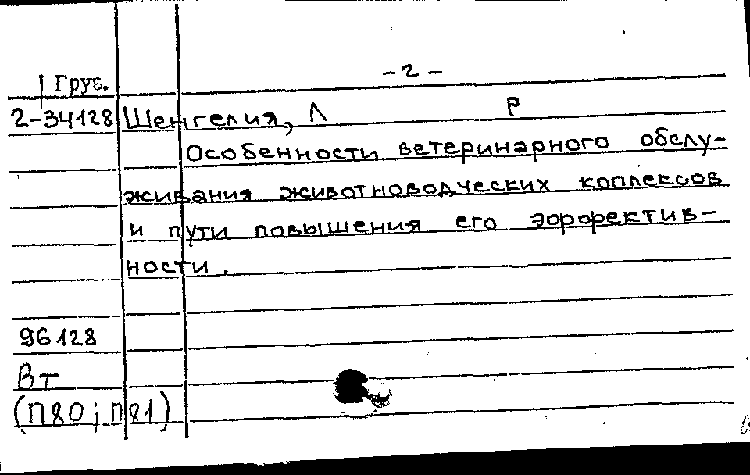 - 2 -
Груз.
2-34128 Шенгелия, Л Р
Особенности ветеринарного обслу-
живания животноводческих коплексов
и пути повышения его эффектив-
ности.
96128
Вт
(П80; П81)